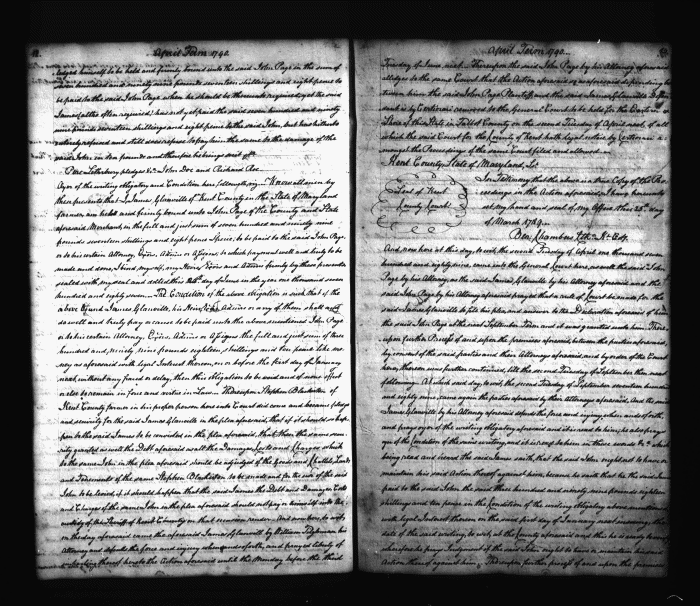 April Term 1790.
Judged himself to be held and firmly bound unto the said John Page in the sum of
seven hundred and ninety nine pounds seventeen shillings and eight pence to
be paid to the said John Page when he should be thereunto required, yet the said
James (altho often required) has not yet paid the said seven hundred and ninety
nine pounds seventeen shillings and eight pence to the said John, but has hitherto
entirely refused and still does refuse to pay him the same to the damage of the
said John ten pounds and therefore he brings suit &c.
Pere Letherbury pledges &c John Doe and Richard Roe
Oyer of the writing obligatory and Condition here follows, viz. Know all men by
these presents that I James Glanvill of Kent County in the State of Maryland
farmer am held and firmly bound unto John Page of the County and State
aforesaid Merchant, in the full and just sum of seven hundred and ninety nine
pounds seventeen shillings and eight pence Specie, to be paid to the said John Page
or to his certain Attorney, Exors, Admrs or Assigns, to which payment well and truly to be
made and done, I bind myself, my Heirs, Exors and Admrs firmly by these presents
sealed with my seal and dated this day of June in the year one thousand seven
hundred and eighty seven. The Condition of the above obligation is such that if the
above bound James Glanvill, his Heirs, Admrs or any of them, shall
do well and truly pay or cause to be paid unto the above mentioned John Page
or his certain Attorney, Exors, Admrs or Assigns the full and just sum of three
hundred and ninety nine pounds eighteen shillings and ten pence like mo
ney as aforesaid with legal Interest thereon, on or before the first day of January
next, without any fraud or delay, then this obligation to be void and of none effect
or else to remain in force and virtue in Law. Thereupon Stephen Blackiston of
Kent County farmer in his proper person here into Court did come and became pledge
and security for the said James Glanvill in the plea aforesaid, that if it should so hap
pen to the said James to be convicted in the plea aforesaid, that then the same secu
rity granted as well the Debt aforesaid as all the Damages Costs and Charges which
to the same John in the plea aforesaid should be adjudged of the Goods and Chattels, Lands
and Tenements of the same Stephen Blackiston to be made and for the use of the said
John to be levied, if it should so happen that the said James the Debt and Damages Costs
and Charges of the same John in the plea aforesaid should not pay or himself into the
custody of the Sheriff of Kent County on that occasion render. And now here, to wit,
on the day aforesaid came the aforesaid James Glanvill by William his
Attorney, and defends the force and injury when and so forth, and prayed liberty of
thereof here to the Action aforesaid until the Monday before the third
April Term 1790.
Tuesday of June next. Thereupon the said John Page by his Attorney aforesaid
alledges to the same Court that the Action aforesaid as aforesaid depending be
tween him the said John Page Plaintiff and the said James Glanvill Defen
dant is by Certiorari removed to the General Court to be held for the Eastern
Shore of this State in Talbot County on the second Tuesday of April next, of all
which the said Court for the County of Kent hath legal notice by Certiorari a
mongst the Proceedings of the same Court filed and allowed.
Kent County, State of Maryland, Sc.
Seal of Kent
County Court
In Testimony that the above is a true Copy of the Pro
ceedings in the Action aforesaid, I have hereunto
set my hand and seal of my Office this 26th day
of March 1789.
Ben: Chambers Clk Kt Coty.
And now here at this day, to wit, the second Tuesday of April one thousand seven
hundred and eighty nine, came into the General Court here, as well the said John
Page by his Attorney, as the said James Glanvill by his Attorney aforesaid and the
said John Page by his Attorney aforesaid prayed that a rule of Court be made for the
said James Glanvill to file his plea, and answer to the Declaration aforesaid of him
the said John Page at the said September Term and it was granted unto him. There
upon further Process of and upon the premises aforesaid, between the parties aforesaid,
by consent of the said parties and their Attorneys aforesaid and by order of the Court
here, thereon was further continued till the second Tuesday of September then next
following. At which said day, to wit, the second Tuesday of September seventeen hundred
and eighty nine, came again the parties aforesaid by their Attorneys aforesaid. And the said
James Glanvill by his Attorney aforesaid defends the force and injury, when and so forth,
and prays oyer of the writing obligatory aforesaid and it is read to him; he also prays
oyer of the Condition of the same writing and it is read to him in these words &c. which
being read and heard the said James saith, that the said John ought not to have or
maintain his said Action thereof against him, because he saith that he the said James
paid to the said John the said three hundred and ninety nine pounds eighteen
shillings and ten pence in the Condition of the writing obligatory above mentioned
with legal Interest thereon on the said first day of January next ensuing the
date of the said writing, to wit, at the County aforesaid and this he is ready to verify
wherefore he prays Judgment if the said John ought to have or maintain his said
Action thereof against him. Thereupon further process of and upon the premises